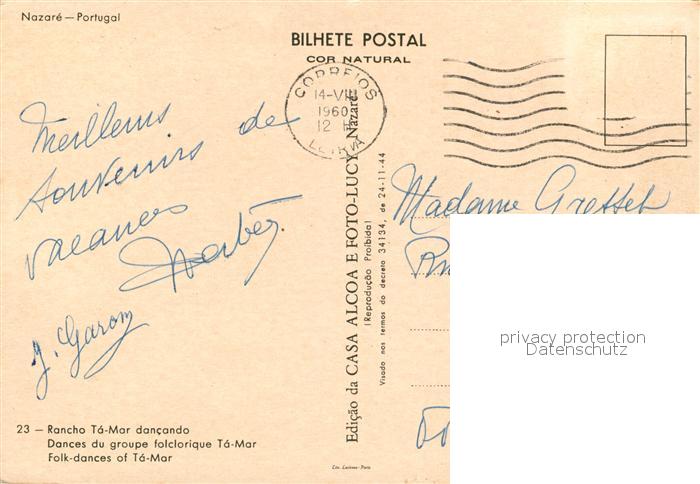 Nazaré — Portugal
BILHETE POSTAL
COR NATURAL
CORREIOS
14-VIII
1960
12 H
LEIRIA
Meilleurs
souvenirs de
vacances
J. Garom
Madame
Edição da CASA ALCOA E FOTO-LUCY — Nazaré
(Reprodução Proíbida)
Visado nos termos do decreto 34134, de 24-11-44
privacy protection
Datenschutz
23 — Rancho Tá-Mar dançando
Dances du groupe folclorique Tá-Mar
Folk-dances of Tá-Mar